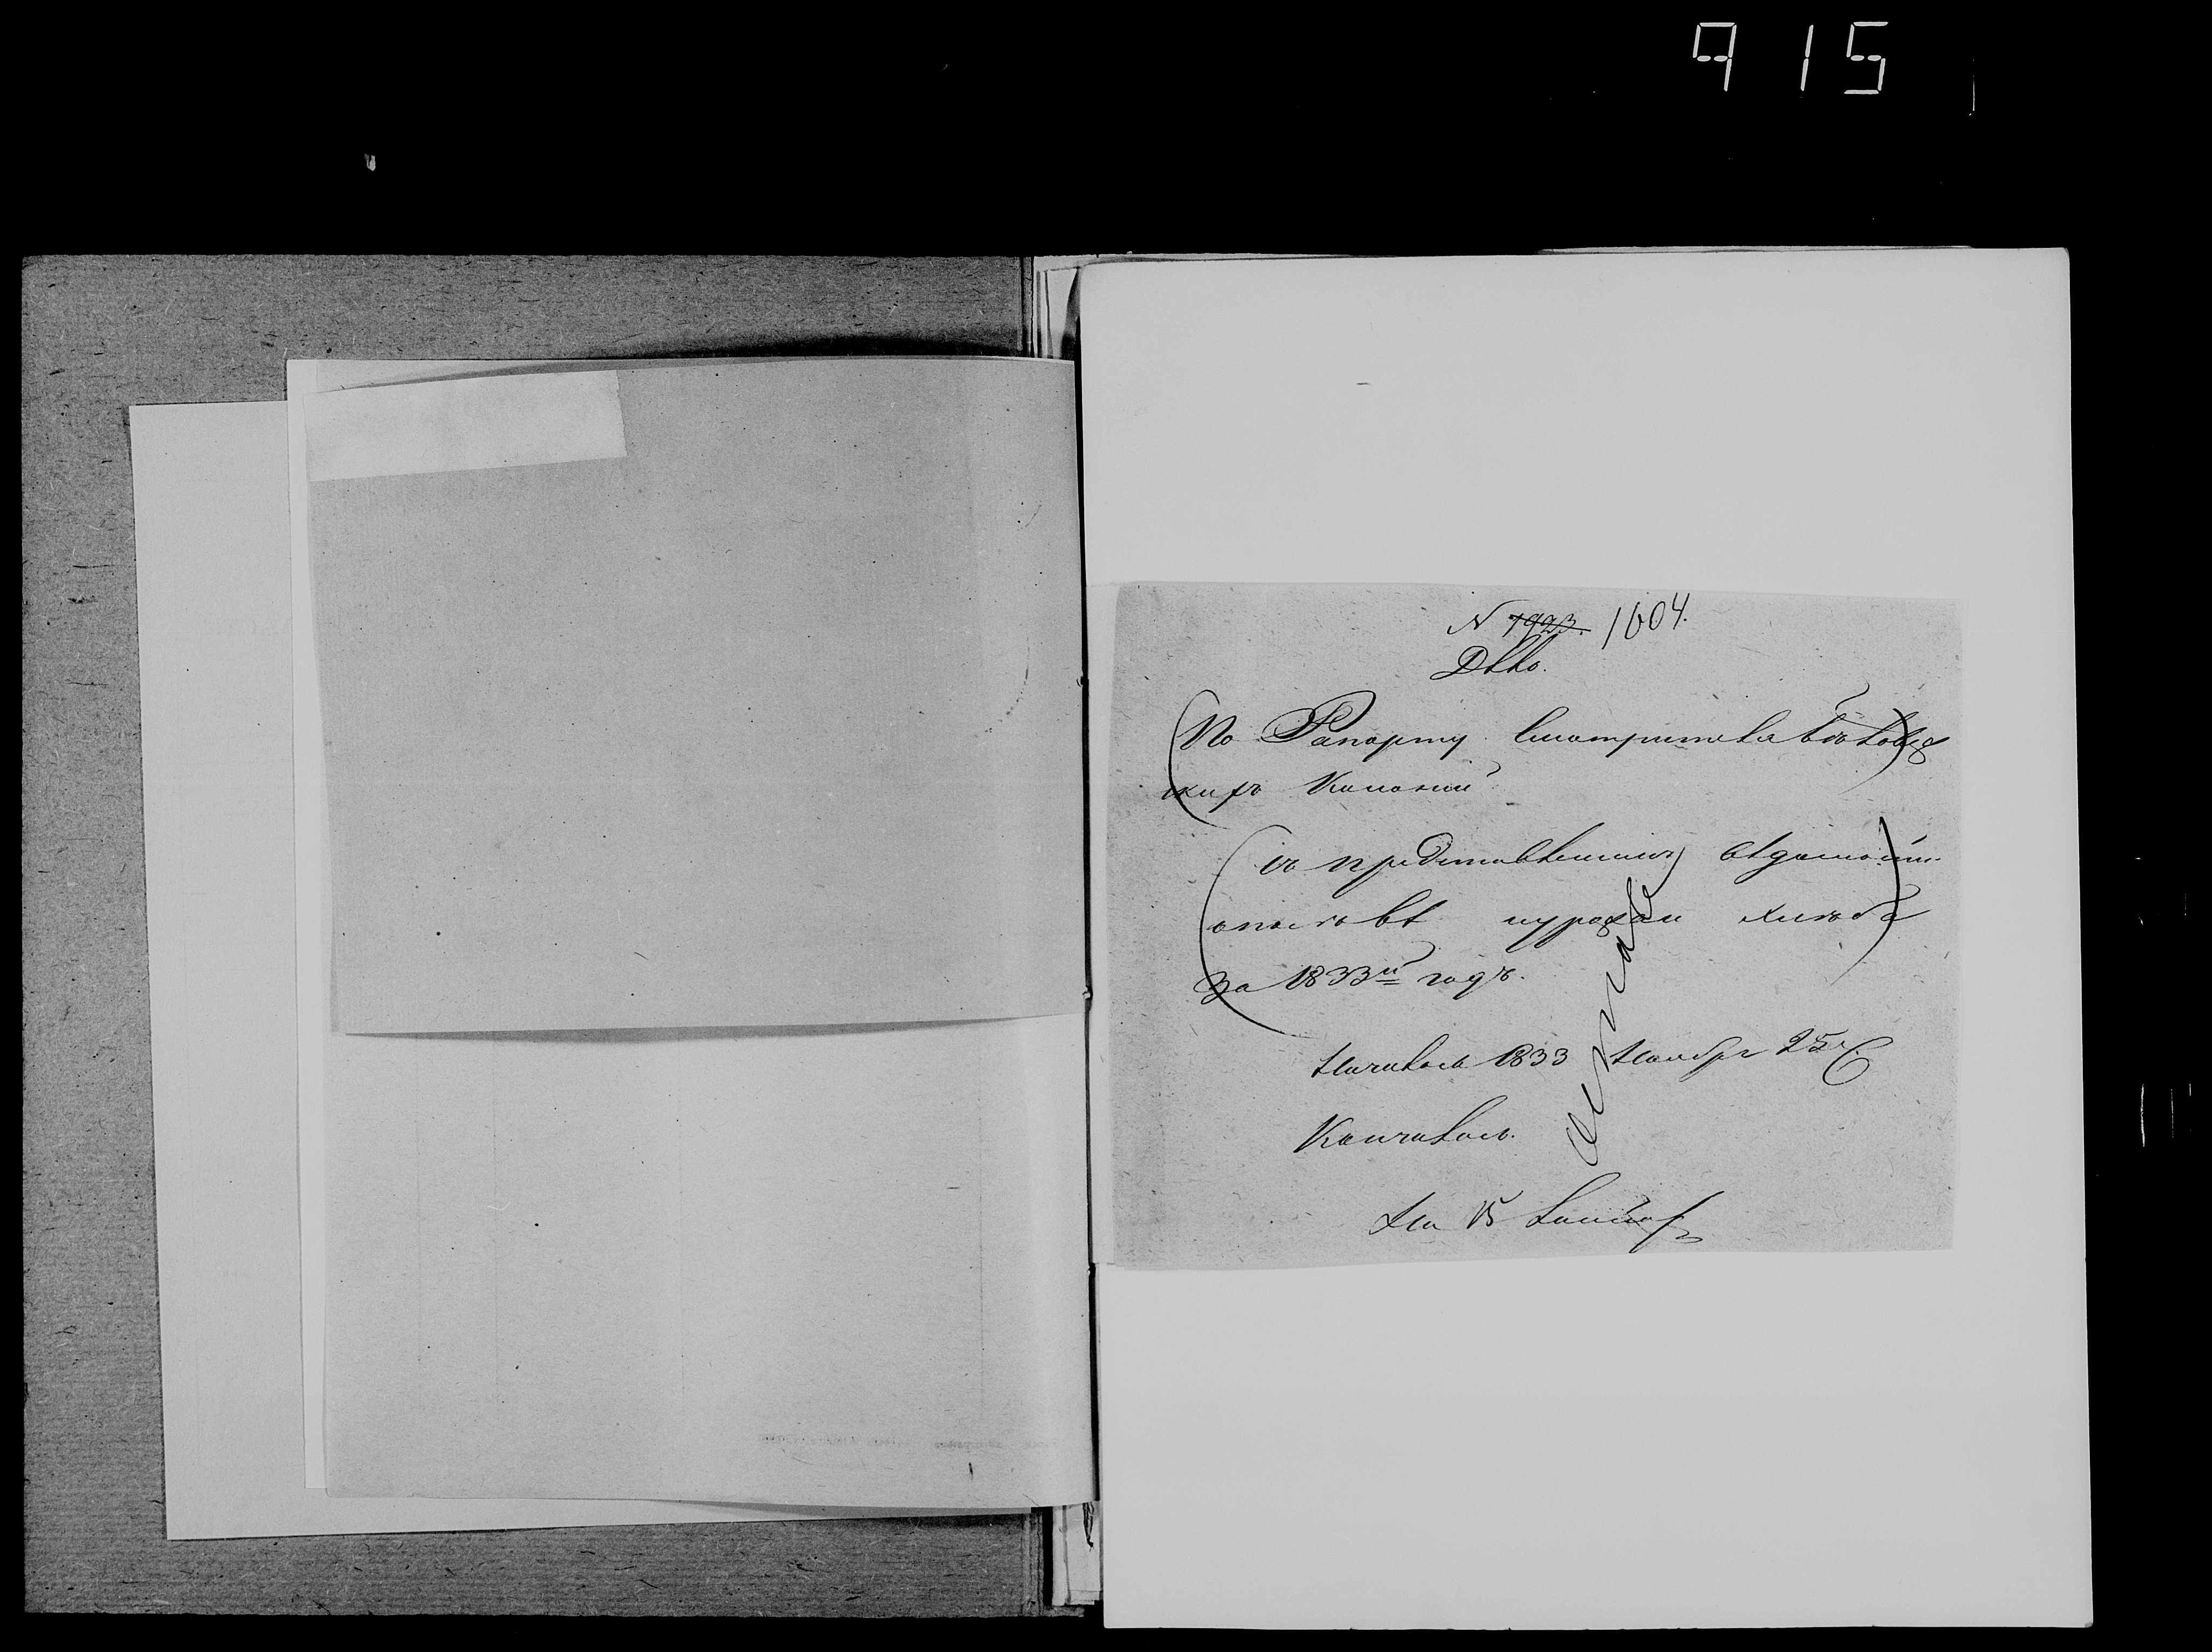 915
N 1923. 1604.
Дѣло.
По Рапорту Смотрителя Бѣловѣж
скихъ Колоній
съ представленіемъ вѣдомости
о посѣвѣ и урожаи хлѣба
за 1833й годъ.
Началось 1833 Ноября 25го
Кончилось.
На 15 листах